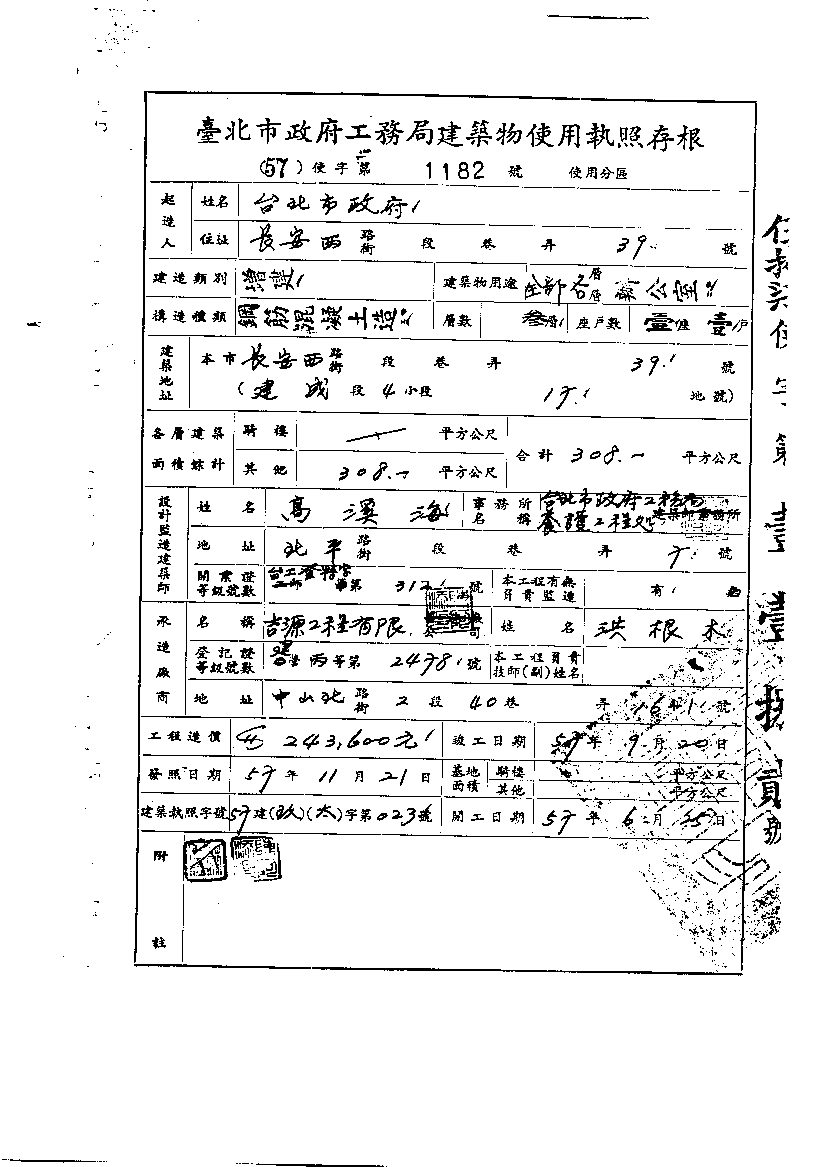 臺北市政府工務局建築物使用執照存根
(57)使字第 1182 號 使用分區
起造人 姓名 台北市政府
住址 長安西 路街 段 巷 弄 39 號
建造類別 增建 建築物用途 全部各層 辦公室
構造種類 鋼筋混凝土造 層數 叁層 座戶數 壹座 壹戶
建築地址 本市 長安西 路街 段 巷 弄 39 號
(建成 段 4 小段 17 地號)
各層建築面積綜計 騎樓 平方公尺 合計 308.- 平方公尺
其他 308.- 平方公尺
設計監造建築師 姓名 高溪海 事務所名稱 台北市政府工務局養護工程處 建築師事務所
地址 北平 路街 段 巷 弄 7 號
開業證等級號數 第 312 號 本工程有無負責監造 有
承造廠商 名稱 吉源工程有限公司 姓名 洪根木
登記證等級號數 丙等第 2478 號 本工程負責技師(副)姓名
地址 中山北 路街 2 段 40 巷 弄 號
工程造價 243,600元 竣工日期 57 年 9 月 20 日
發照日期 57 年 11 月 21 日 基地面積 騎樓 平方公尺
其他 平方公尺
建築執照字號 57 建(玖)(大)字第 023 號 開工日期 57 年 6 月 25 日
附註
使字第壹壹捌貳號